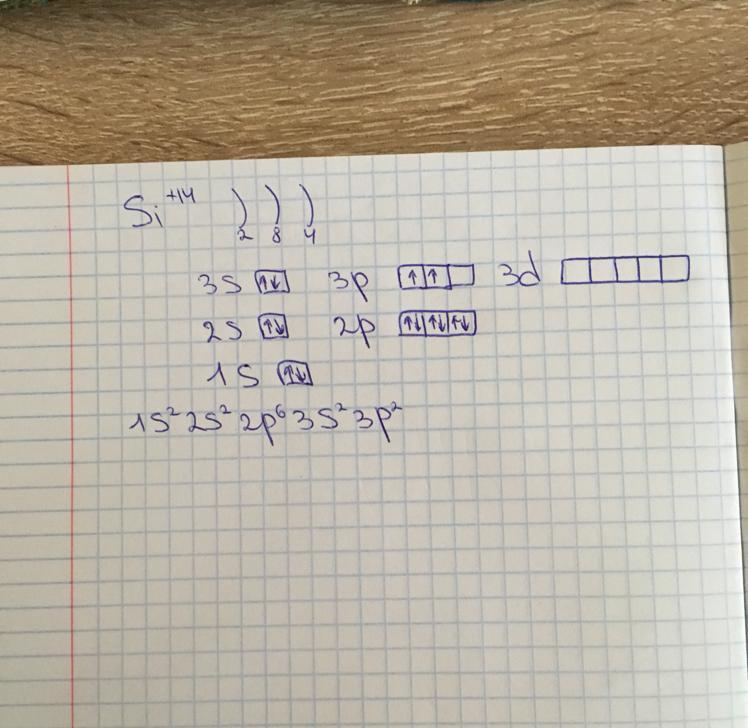 Si⁺¹⁴ ) ) )
2 8 4
3s ↑↓ 3p ↑ ↑ 3d
2s ↑↓ 2p ↑↓ ↑↓ ↑↓
1s ↑↓
1s² 2s² 2p⁶ 3s² 3p²